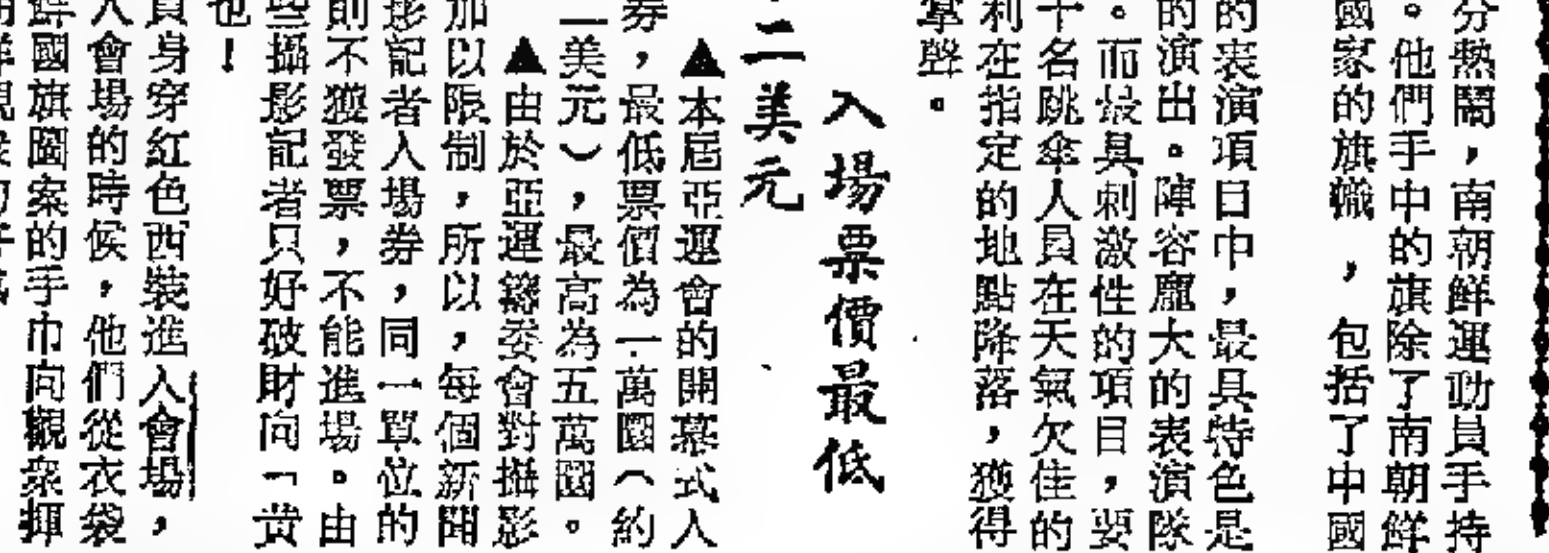 分熱鬧，南朝鮮運動員手持
。他們手中的旗除了南朝鮮
國家的旗幟，包括了中國
的表演項目中，最具特色是
的演出。陣容龐大的表演隊
。而最具刺激性的項目，要
十名跳傘人員在天氣欠佳的
利在指定的地點降落，獲得
掌聲。
入場票價最低
二美元
▲本屆亞運會的開幕式入
券，最低票價為一萬圜（約
二美元），最高為五萬圜。
▲由於亞運籌委會對攝影
加以限制，所以，每個新聞
影記者入場券，同一單位的
則不獲發票，不能進場。由
些攝影記者只好破財向「黃
也！
員身穿紅色西裝進入會場，
入會場的時候，他們從衣袋
鮮國旗圖案的手巾向觀衆揮